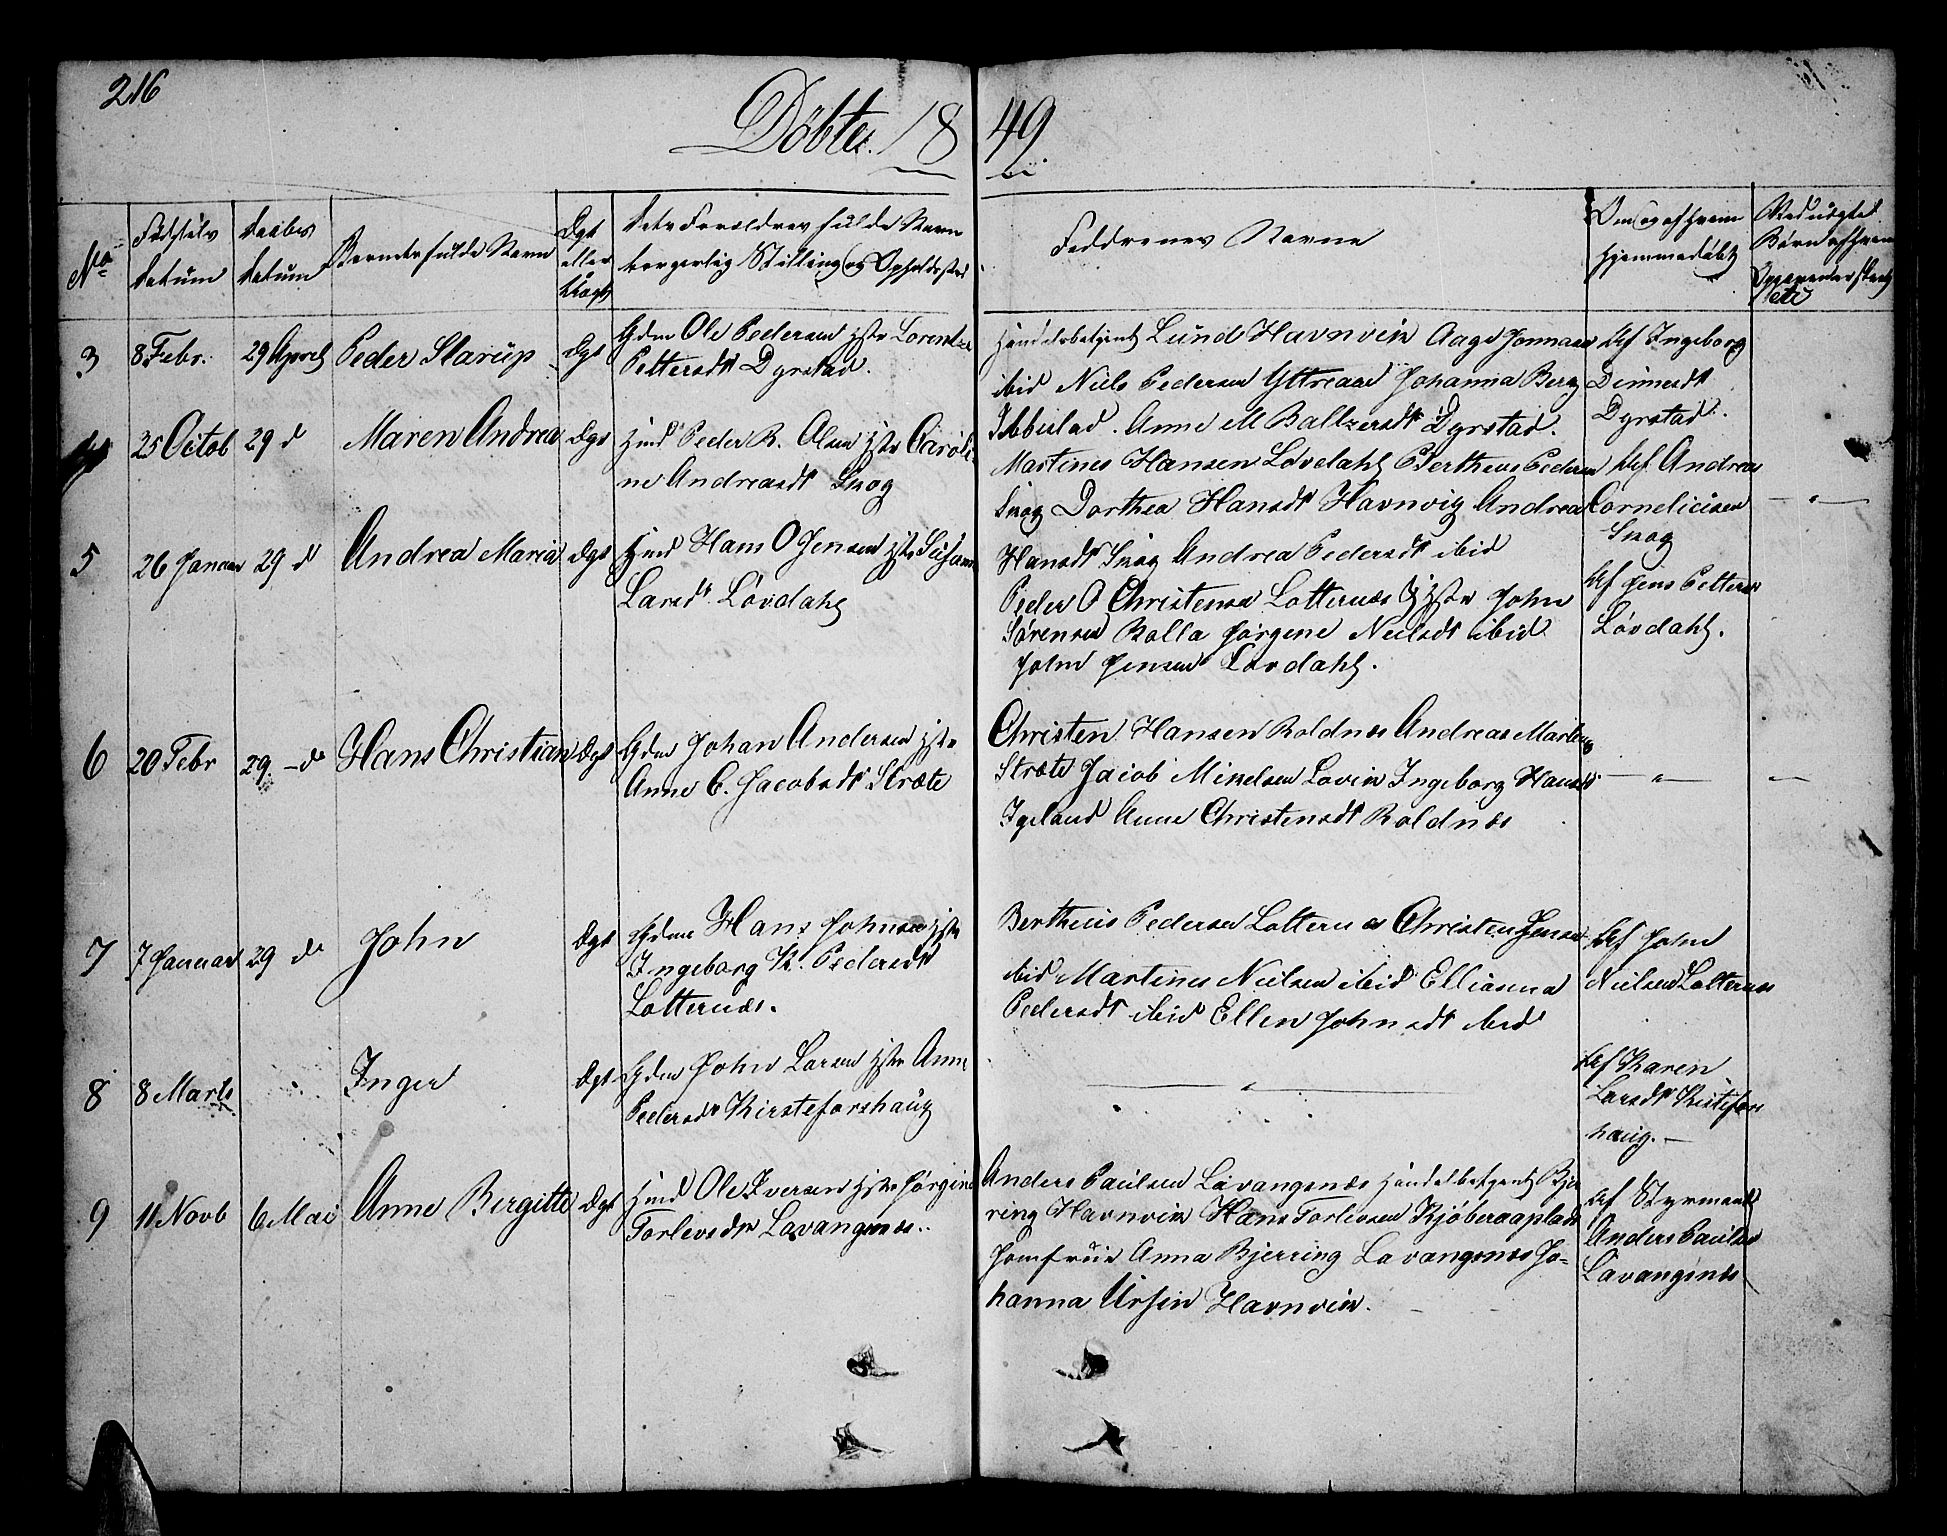 216
Döbte 18 49.
No
Födsels datum
Daabs datum
Barnets fulde Navn
Ægt eller Uægte
dets Forældres fulde Navn
borgerlig Stilling og Opholdssted
Faddrenes Navne
Om og af hvem
hjemmedöbt
3 8 Febr. 29 April Peder Slarup Ægt Gdm Ole Pedersen Hstr Lorentze
Pettersdt Dyrstad.
Handelsbetjent Lund Havnvik Aage Jonnasen
ibid Niels Pedersen Yttreaae Johanna Berg
Ibbestad. Anne M Baltzersdt Dyrstad.
Af Ingeborg
Dyrstad.
4 25 Octob 29 d Maren Andrea Ægt Hmd Peder R. Olsen Hstr Caroli-
ne Andreasdt Skog
Martines Hansen Lövdahl Bertheus Pedersen
Skog Dorthea Hansdt Havnvig Andrea
Hansdt Skog Andrea Pedersdt ibid
Af Andreas
Corneliusen
Skog
5 26 Januar 29 d Andrea Maria Ægt Hmd Hans O Jensen Hstr Susanne
Larsdt. Lövdahl
Peder O Christensen Lotternæs & Hstr John
Sörensen Rolla Jörgene Neilsdt ibid
John Jensen Lövdahl.
Af Jens Petters
Lövdahl.
6 20 Febr 29 - d Hans Christian Ægt Gdm Johan Andersen Hstr
Anne C. Jacobsdt Stræte
Christen Hansen Roldnæs Andreas Martinus
Stræte Jacob Mikelsen Lovik Ingeborg Hansdt
Igeland Anne Christensdt Roldnæs
7 7 Januar 29 d John Ægt Gdm Hans Johnsen Hstr
Ingeborg K. Pedersdt
Lotternæs.
Bertheus Pedersen Lotternæs Christen Jensen
ibid Martines Nielsen ibid Elliasena
Pedersdt ibid Ellen Johnsdt ibid
Af John
Nielsen Lotternæs
8 8 Marts Inger Ægt Gdm John Larsen Hstr Anne
Pedersdt Kirsteforshaug
Af Karen
Larsdt Kistefos
haug. -
9 11 Novb 6 Mai Anne Birgitte Ægt Hmd Ole Iversen Hstr Jörgine
Torlevsdtr Lavangsnæs.
Anders Paulsen Lavangsnæs Handelbetjent Bjer
ring Havnvik Hans Torlevsen Kjöberaaplads
Jomfrue Anna Bjerring Lavangsnæs Jo-
hanna Ursin Havnvik.
Af Styrmand
Anders Paulsen
Lavangsnæs